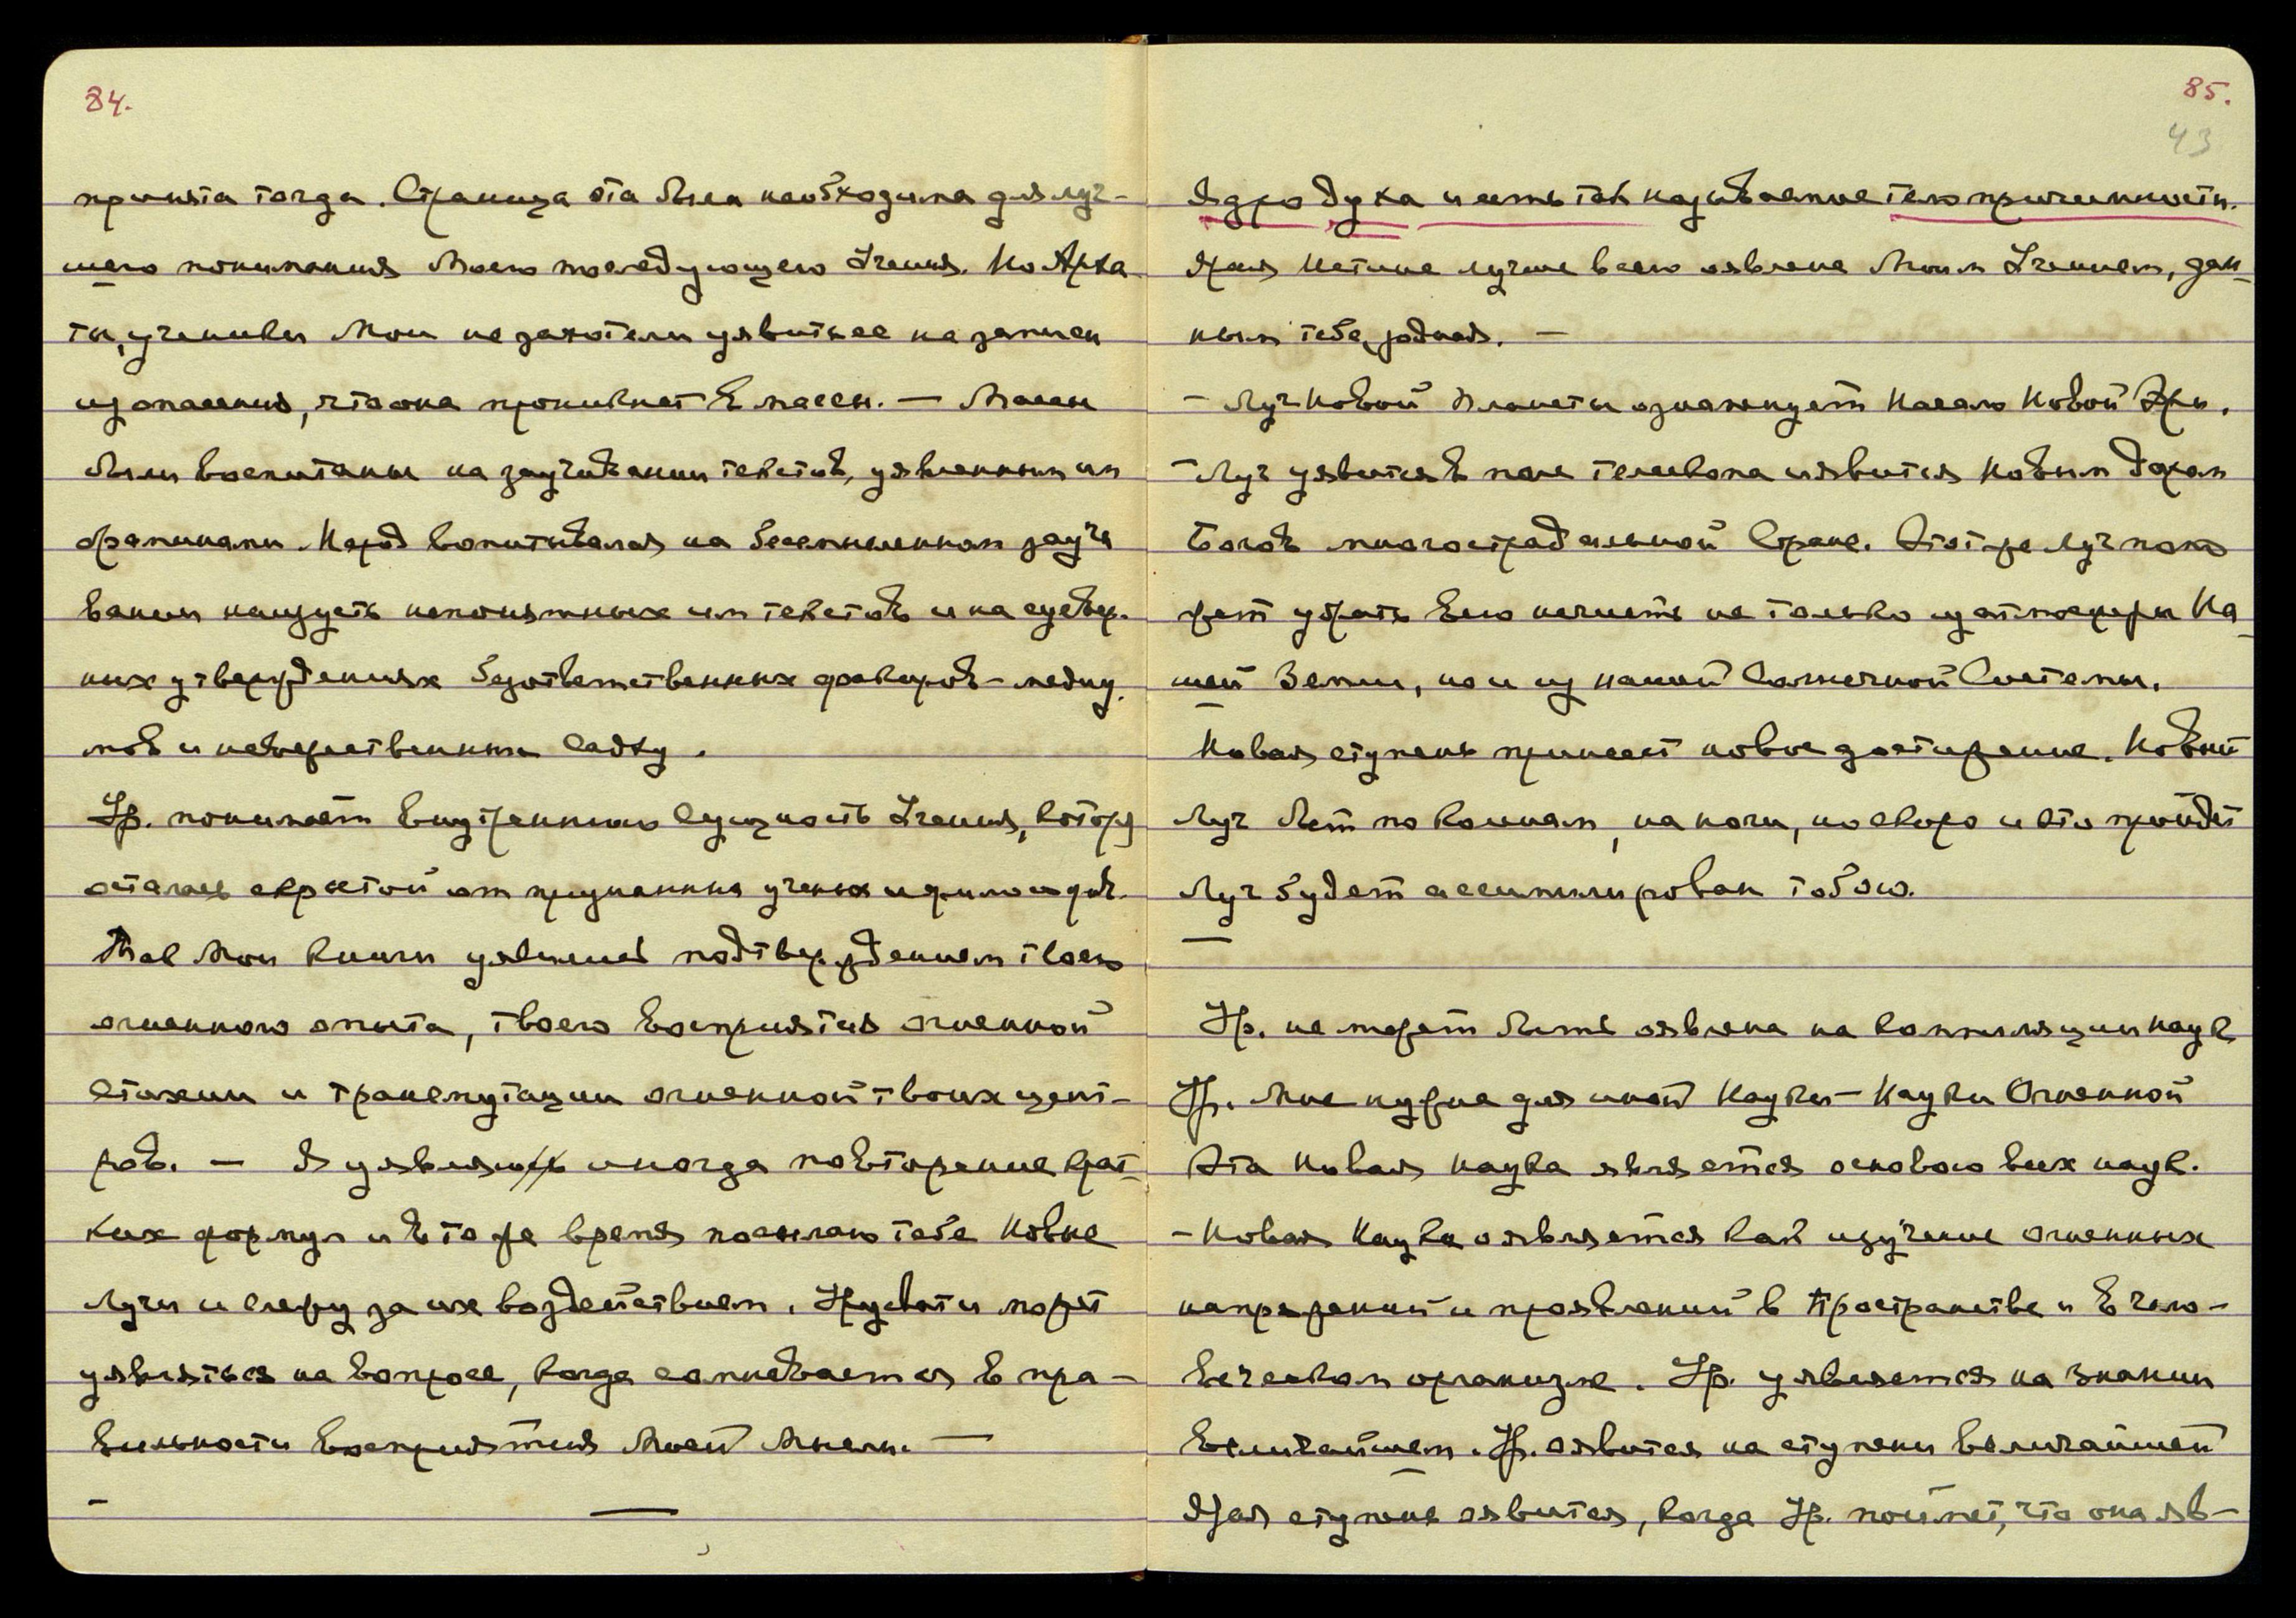 84.
принята тогда. Страница эта была необходима для луч-
шего понимания Моего последующего Учения. Но Арха-
ты, ученики Мои не захотели уявить ее на записи
из опасения, что она проникнет в массы. — Массы
были воспитаны на заучивании текстов, уявленных им
браминами. Народ воспитывался на бессмысленном заучи
вании наизусть непонятных им текстов и на суевер-
ных утверждениях безответственных факиров-медиу-
мов и невежественных садху.
Ур. понимает внутреннюю сущность Учения, котор
осталась скрытой от придуманных ученых и философов.
Так Мои книги уявились подтверждением твоего
огненного опыта, твоего восприятия огненной
стихии и трансмутации огненной твоих цент-
ров. — Я уявляю иногда повторение крат-
ких формул и в то же время посылаю тебе новые
Лучи и слежу за их воздействием. Урусвати может
уявляться на вопросе, когда сомневается в пра-
вильности восприятия Моей Мысли. —
85.
43
Ядро духа и есть так называемое тело причинности.
Ярая Истина лучше всего оявлена Моим Учением, дан-
ным тебе, родная. —
- Луч Новой Планеты ознаменует Начало Новой Эры.
- Луч уявится в поле телескопа и явится Новым Даром
Богов многострадальной Стране. Этот же Луч помо
жет убрать всю нечисть не только из атмосферы На-
шей Земли, но и из нашей Солнечной Системы.
Новая ступень принесет новое достижение. Новый
Луч бьет по коленам, на ночи, но скоро и это пройдет
Луч будет ассимилирован тобою.
Ур. не может быть оявлена на компиляции наук
Ур. Мне нужна для иной Науки — Науки Огненной
Эта Новая Наука является основою всех наук.
- Новая Наука оявляется как изучение огненных
напряжений и проявлений в Пространстве и в чело-
веческом организме. Ур. уявляется на знании
Величайшем. Ур. оявится на ступени величайшей
Ярая ступень оявится, когда Ур. поймет, что она яв-